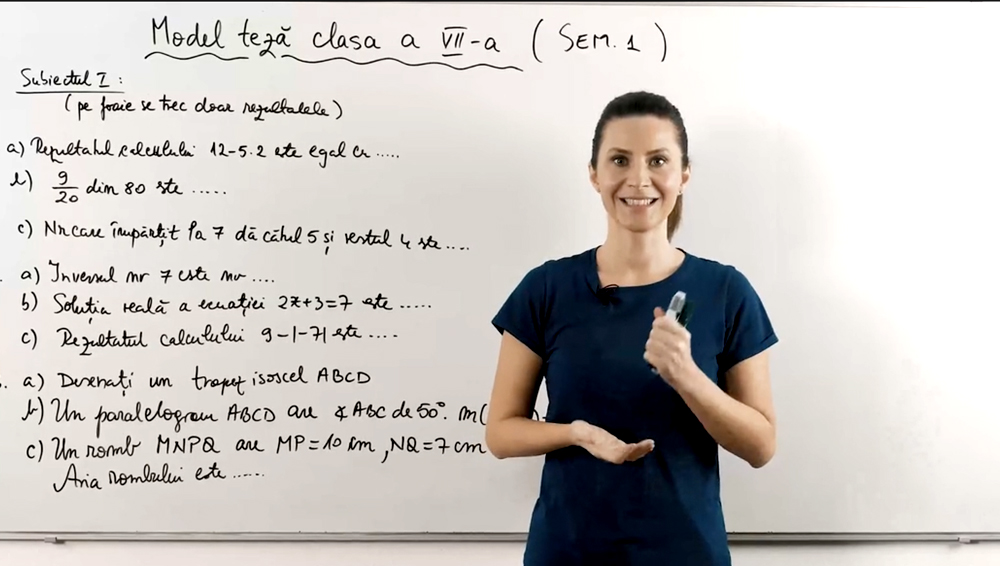 Model teză clasa a VII-a (SEM. 1)
Subiectul I :
(pe foaie se trec doar rezultatele)
a) Rezultatul calculului 12-5.2 este egal cu .....
b) 9/20 din 80 este .....
c) Nr care împărțit la 7 dă câtul 5 și restul 4 este ....
a) Inversul nr 7 este nr ....
b) Soluția reală a ecuației 2x+3=7 este .....
c) Rezultatul calculului 9-|-7| este ....
a) Desenați un trapez isoscel ABCD
b) Un paralelogram ABCD are ∢ABC de 50°. m(
c) Un romb MNPQ are MP=10 cm, NQ=7 cm
Aria rombului este .....